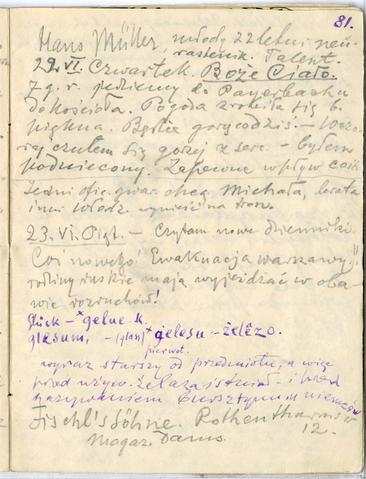 81.
Hans Müller, młody 22 letni neu-
rastenik. Talent.
22. VI. Czwartek. Boże Ciało.
7 g. r. jedziemy do Payerbachu
do kościoła. Pogoda zrobiła się b.
piękna. Będzie gorąco dziś. – Wczo-
raj czułem się gorzej z serc. – byłem
podniecony. Zapewne wpływ
Michała, brata
inni wynieść na tron.
23. VI. Piąt. – Czytam nowe dzienniki.
Coś nowego! Ewakuacja Warszawy!
rodziny ruskie mają wyjeżdżać w oba-
wie rozruchów!
Glück – *gelue k.
glesum, – (glas) *gelesu – żelezo.
pierwot.
wyraz starszy od przedmiotu, a więc
przed używ. żelaza istniał – i przed
nazywaniem bursztynu u niemców
Fischl's Söhne. Rothenthurmstr
12.
Magaz. Dams.